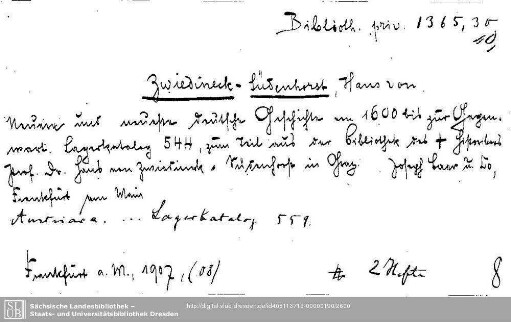 Biblioth. priv. 1365, 30
Zwiedineck-Südenhorst, Hans von.
Neuere und neueste deutsche Geschichte von 1600 bis zur Gegen-
wart. Lagerkatalog 544, zum Teil aus der Bibliothek des † Historikers
Prof. Dr. Hans von Zwiedineck-Südenhorst in Graz. Joseph Baer u. Co,
Frankfurt am Main
Austriaca. ... Lagerkatalog 559.
Frankfurt a. M., 1907, (08) 2 Hefte 8
SLUB
Sächsische Landesbibliothek –
Staats- und Universitätsbibliothek Dresden